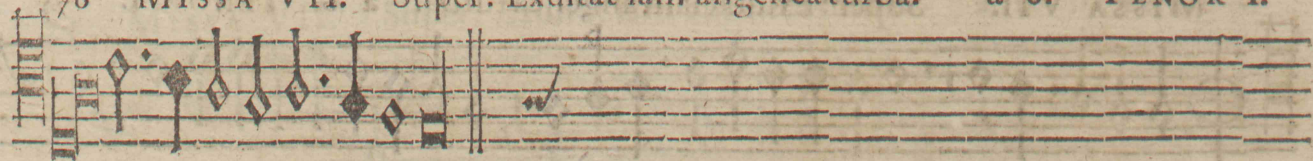 78 MISSA VII. Super: Exultat iam angelica turba. a 6. TENOR I.